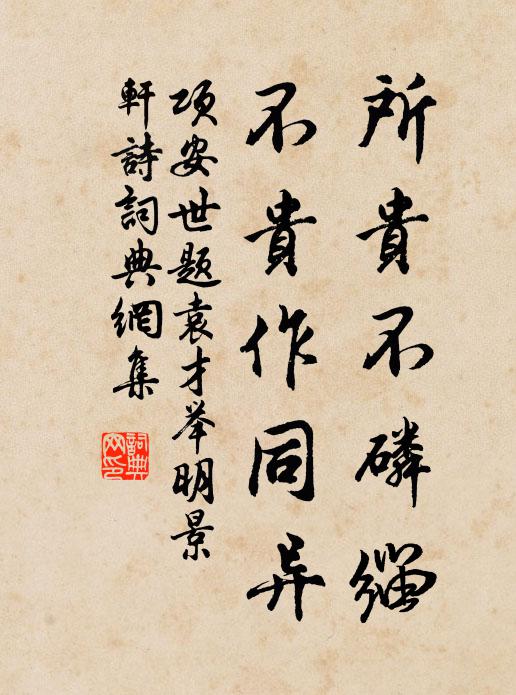 所貴不磷緇
不貴作同异
项安世题袁才举明景
軒詩詞典網集
詞典
网印